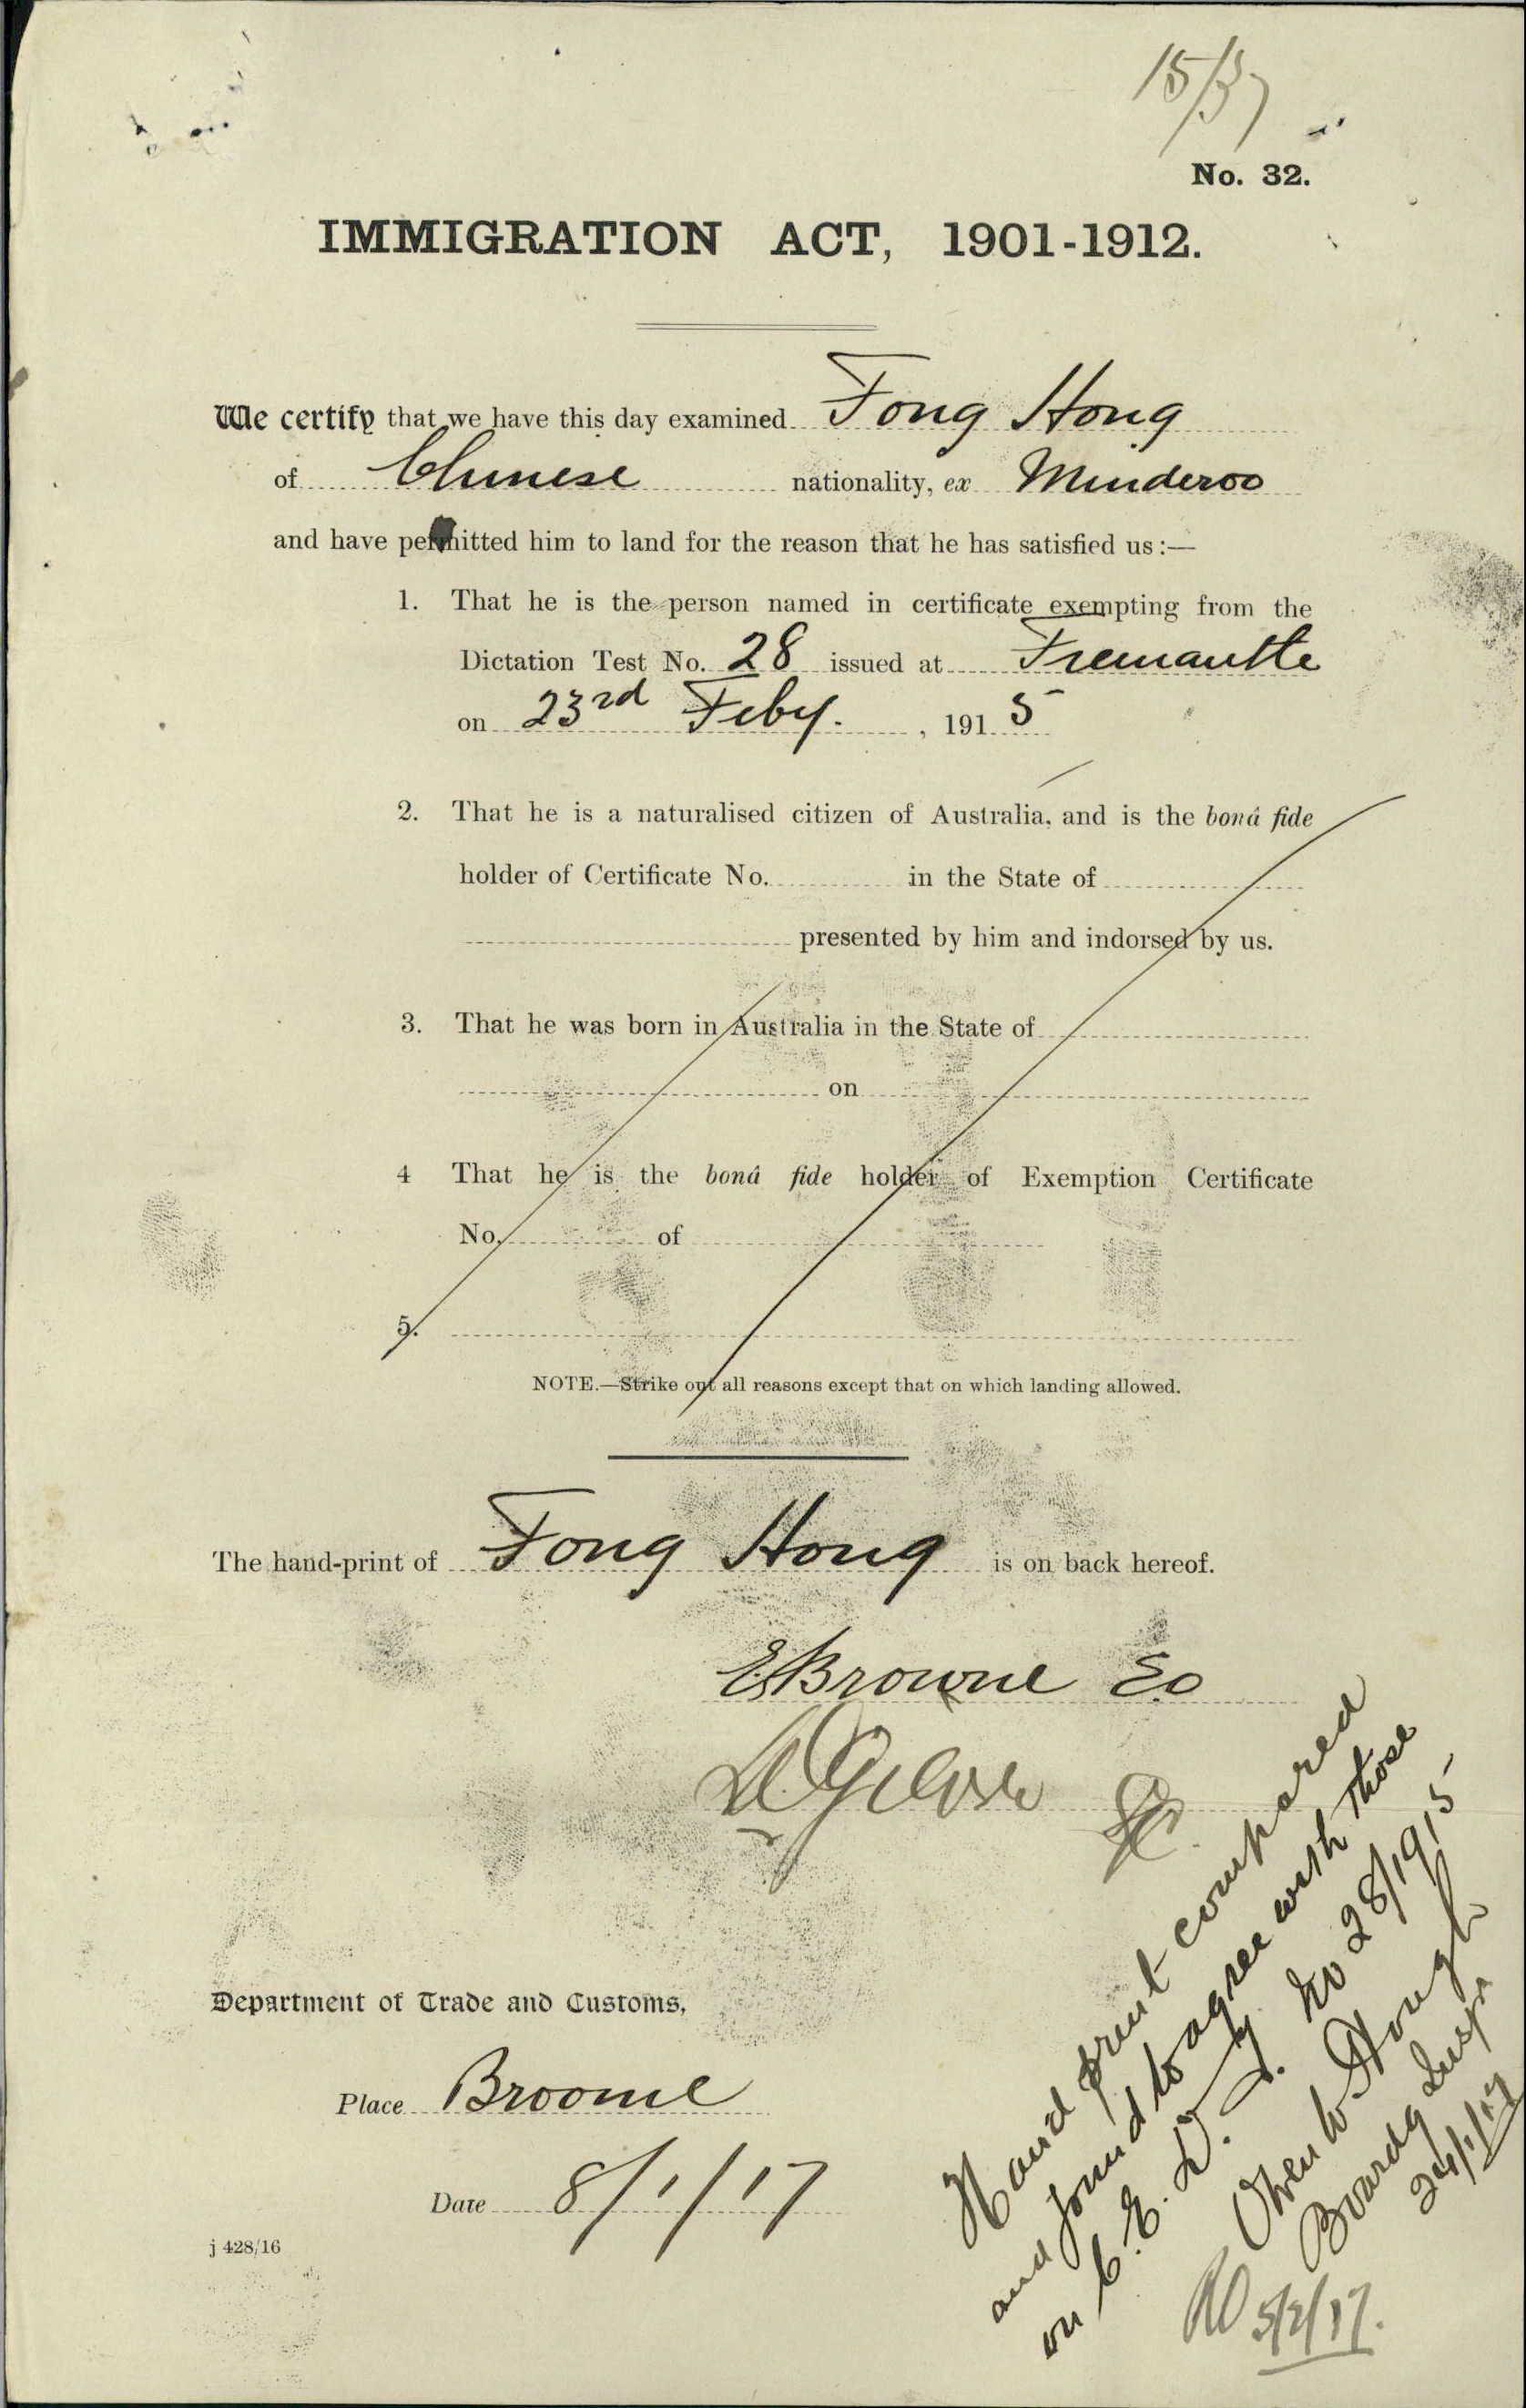 15/37
No. 32.
IMMIGRATION ACT, 1901-1912.
We certify that we have this day examined Fong Hong
of Chinese nationality, ex Minderoo
and have permitted him to land for the reason that he has satisfied us:—
1. That he is the person named in certificate exempting from the
Dictation Test No. 28 issued at Fremantle
on 23rd Feby. , 1915
2. That he is a naturalised citizen of Australia, and is the bonâ fide
holder of Certificate No. in the State of
presented by him and indorsed by us.
3. That he was born in Australia in the State of
on
4 That he is the bonâ fide holder of Exemption Certificate
No. of
5.
NOTE.—Strike out all reasons except that on which landing allowed.
The hand-print of Fong Hong is on back hereof.
E Browne EO
Department of Trade and Customs,
Place Broome
Date 8/1/17
j 428/16
Hand print compared
and found to agree with those
on C.E.D.T. No 28/1915
Owen W Hough
Boardg Inspr
24/1/17
5/2/17.